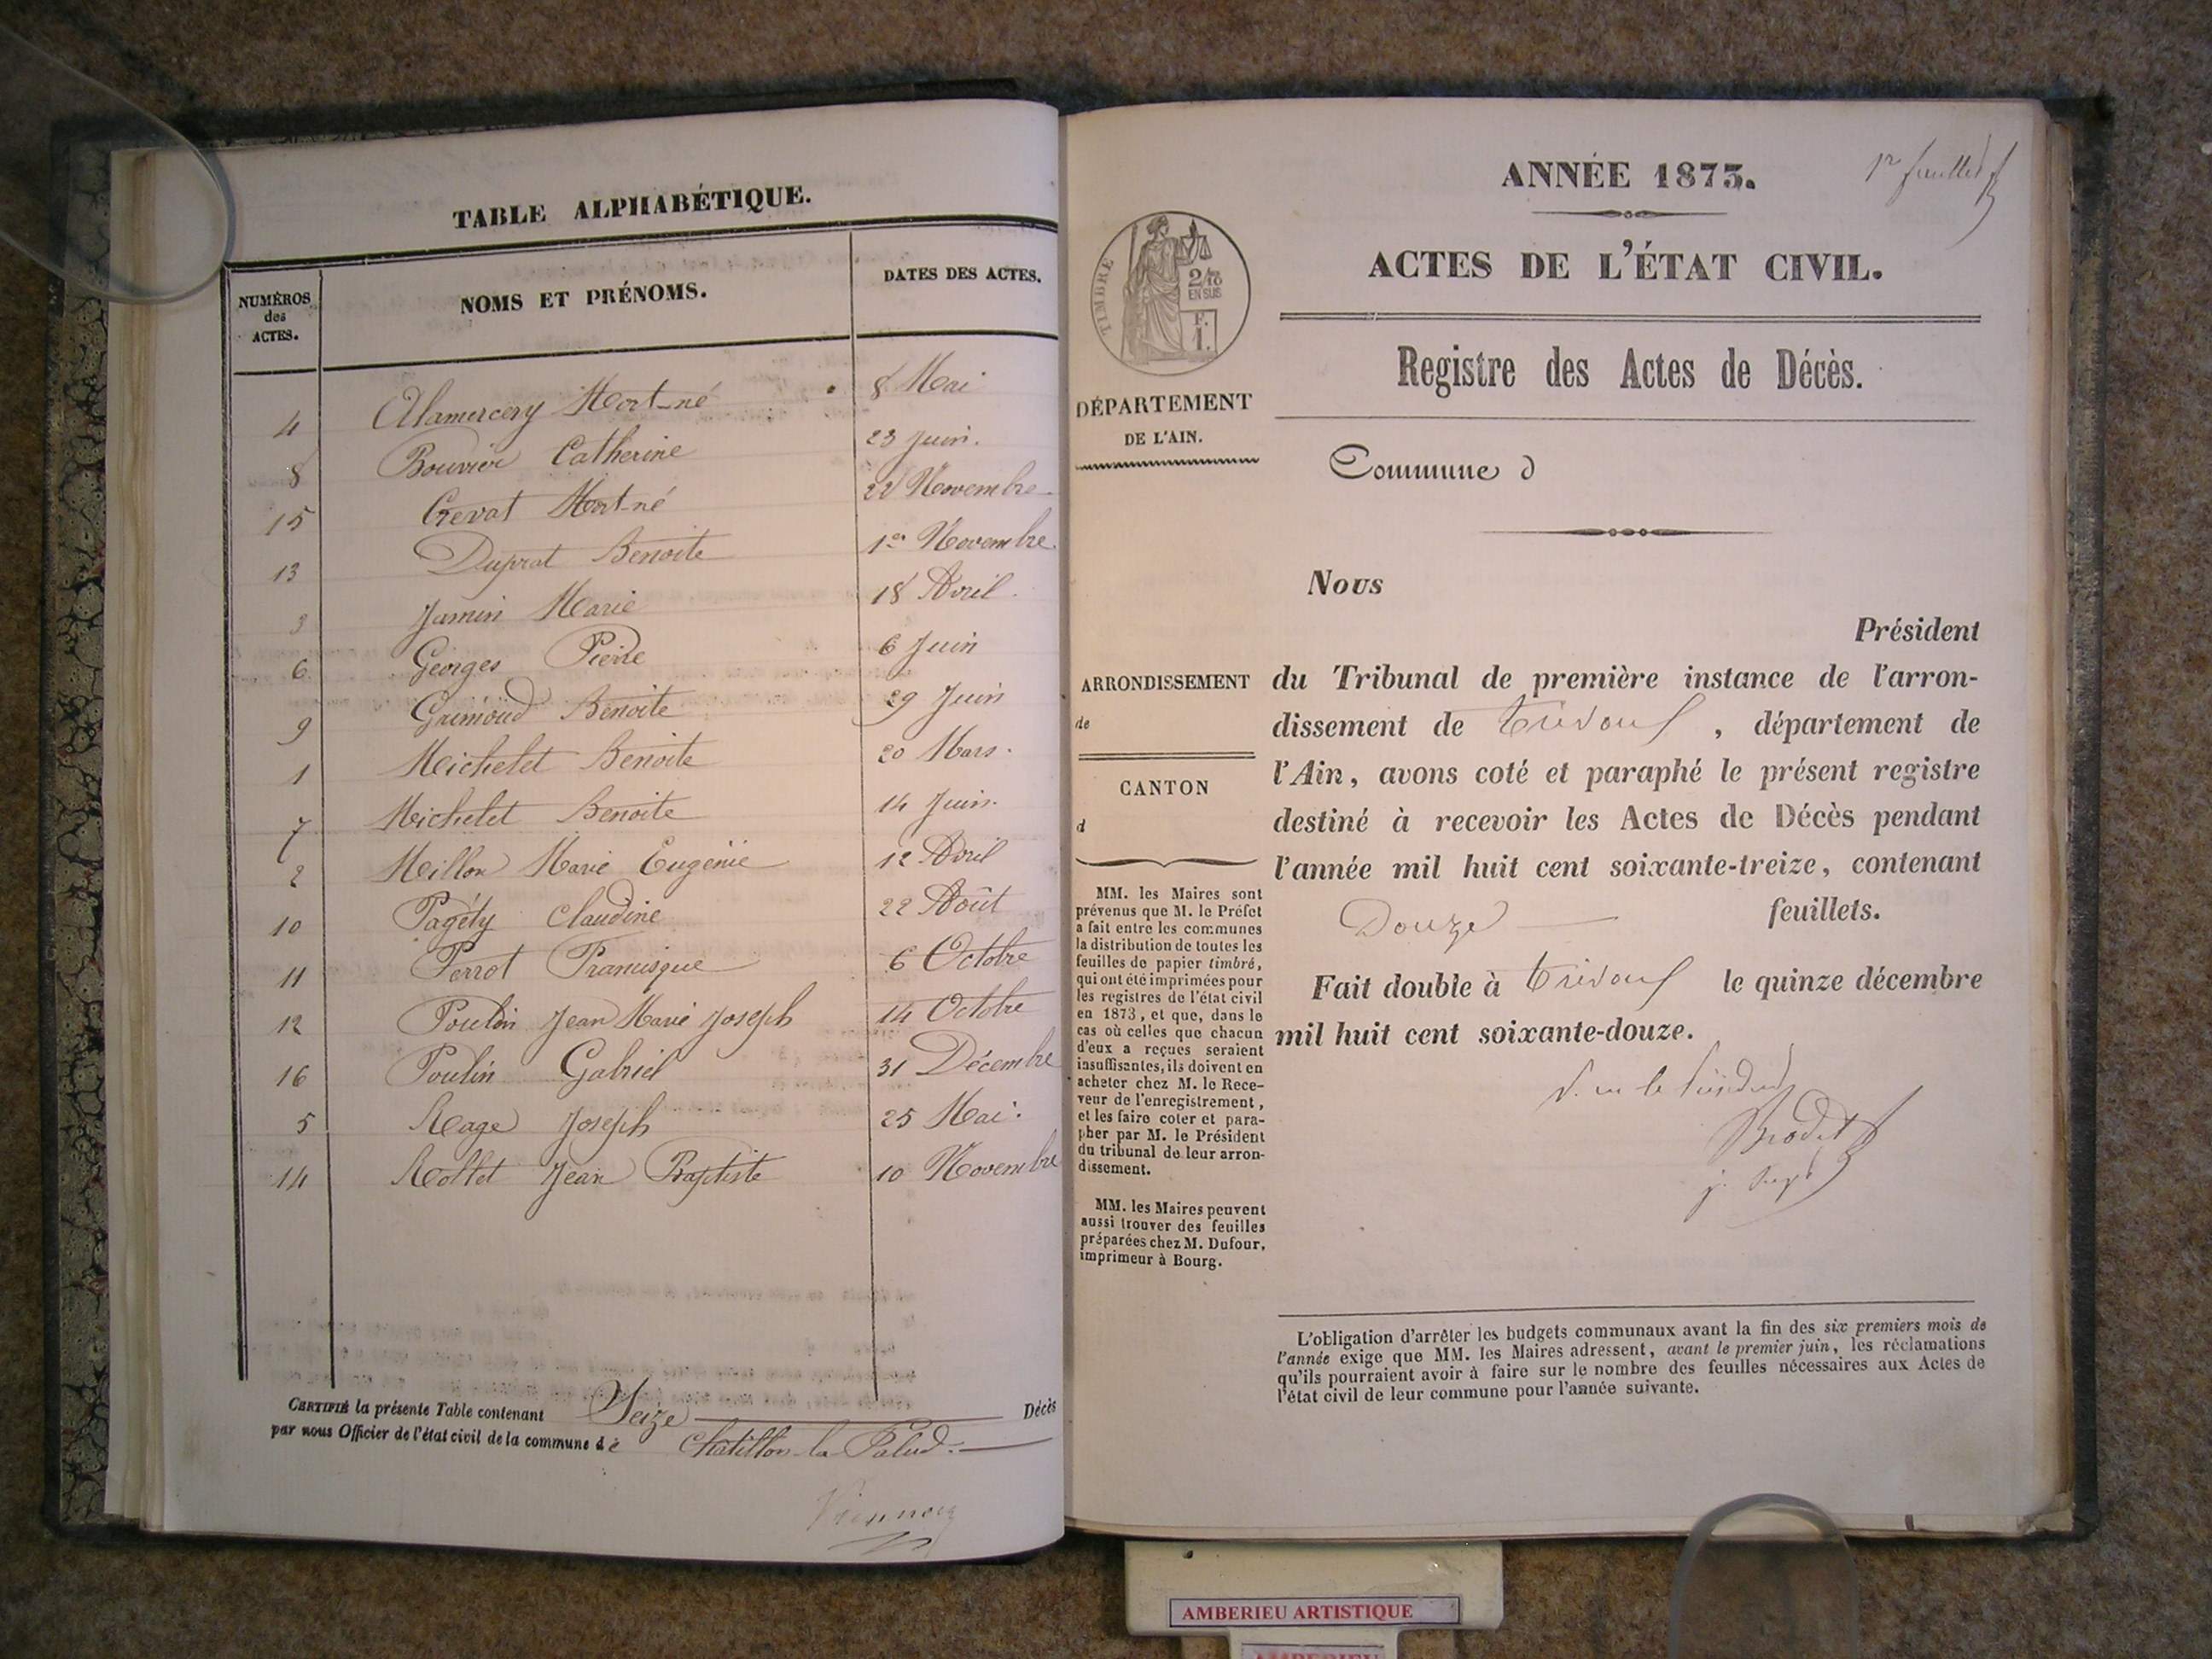 TABLE ALPHABÉTIQUE.
NUMÉROS des ACTES. NOMS ET PRÉNOMS. DATES DES ACTES.
4 Alamercery Mort-né 8 Mai
8 Bouvier Catherine 23 Juin.
15 Crevat Mort-né 22 Novembre
13 Duprat Benoite 1er Novembre
3 Jamin Marie 18 Avril.
6 Georges Pierre 6 Juin
9 Grimoud Benoite 29 Juin
1 Michelet Benoite 20 Mars.
7 Michelet Benoite 14 Juin.
2 Millon Marie Eugénie 12 Avril
10 Pagéty Claudine 22 Août
11 Perrot Francisque 6 Octobre
12 Poulin Jean Marie Joseph 14 Octobre
16 Poulin Gabriel 31 Décembre
5 Rage Joseph 25 Mai.
14 Rollet Jean Baptiste 10 Novembre
CERTIFIÉ la présente Table contenant Seize Décès
par nous Officier de l'état civil de la commune de Châtillon-la-Palud.
1er feuillet
ANNÉE 1873.
ACTES DE L'ÉTAT CIVIL.
Registre des Actes de Décès.
TIMBRE
2/10
EN SUS
F.
1.
DÉPARTEMENT
DE L'AIN.
Commune d
Nous
Président
ARRONDISSEMENT
de
CANTON
d
du Tribunal de première instance de l'arron-
dissement de Trévoux, département de
l'Ain, avons coté et paraphé le présent registre
destiné à recevoir les Actes de Décès pendant
l'année mil huit cent soixante-treize, contenant
Douze feuillets.
Fait double à Trévoux le quinze décembre
mil huit cent soixante-douze.
Brodet
MM. les Maires sont
prévenus que M. le Préfet
a fait entre les communes
la distribution de toutes les
feuilles de papier timbré,
qui ont été imprimées pour
les registres de l'état civil
en 1873, et que, dans le
cas où celles que chacun
d'eux a reçues seraient
insuffisantes, ils doivent en
acheter chez M. le Rece-
veur de l'enregistrement,
et les faire coter et para-
pher par M. le Président
du tribunal de leur arron-
dissement.
MM. les Maires peuvent
aussi trouver des feuilles
préparées chez M. Dufour,
imprimeur à Bourg.
L'obligation d'arrêter les budgets communaux avant la fin des six premiers mois de
l'année exige que MM. les Maires adressent, avant le premier juin, les réclamations
qu'ils pourraient avoir à faire sur le nombre des feuilles nécessaires aux Actes de
l'état civil de leur commune pour l'année suivante.
AMBERIEU ARTISTIQUE
AMBERIEU